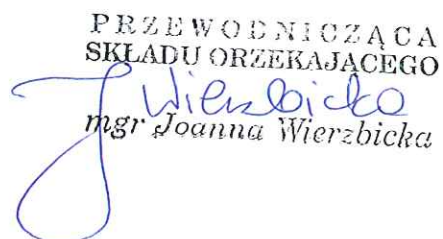 PRZEWODNICZĄCA
SKŁADU ORZEKAJĄCEGO
J Wierzbicka
mgr Joanna Wierzbicka